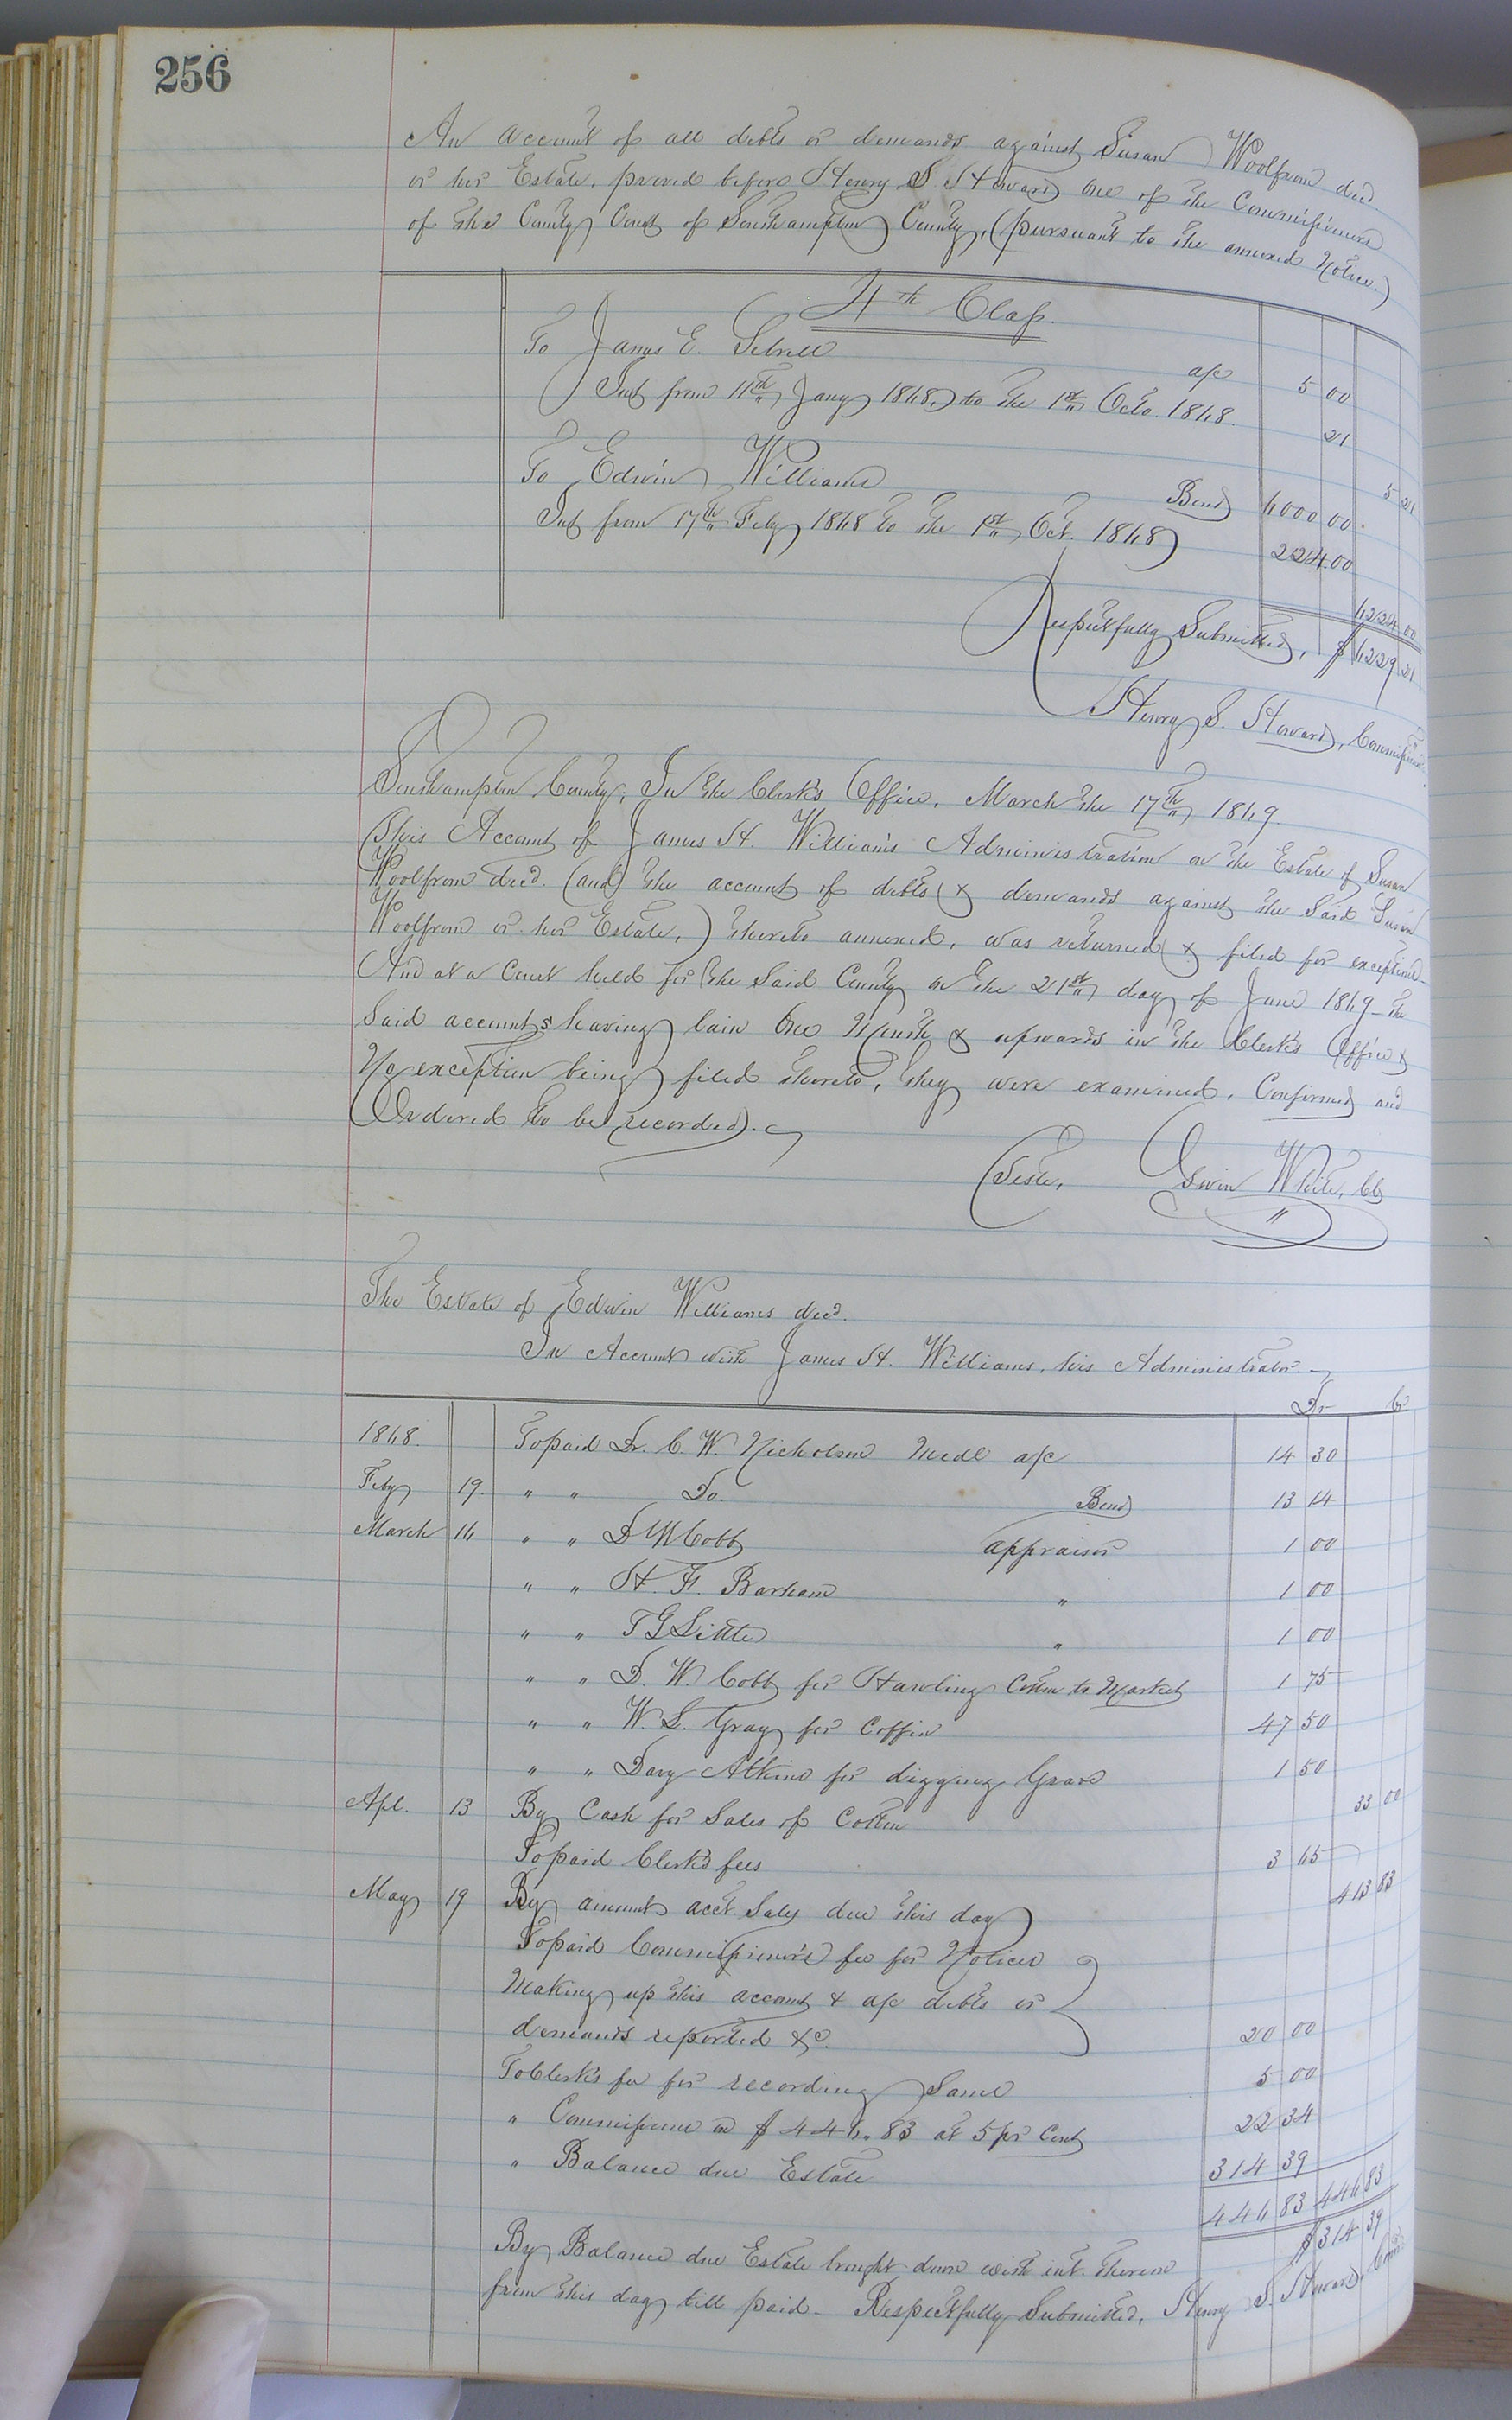 256
An account of all debts or demands against Susan Woolfrom decd
or her Estate, proved before Henry S. Howard one of the Commissioners
of the County Court of Southampton County, (pursuant to the annexed Notice.)
4th Class.
To James E. Sebrell a/c 5 00
Int from 11th Jany 1868, to the 1st Octo. 1868. 21
5 21
To Edwin Williams Bond 6000 00
Int from 17th Feby 1868 to the 1st Oct. 1868 224.00
6224 00
Respectfully Submitted, $ 6229 21
Henry S. Howard, Commissioner
Southampton County, In the Clerk's Office, March the 17th 1869.
This Account of James H. Williams Administration on the Estate of Susan
Woolfrom decd. (and the account of debts & demands against the Said Susan
Woolfrom or her Estate,) thereto annexed, was returned & filed for exceptions
And at a Court held for the Said County on the 21st day of June 1869 the
Said accounts having lain One Month & upwards in the Clerk's Office &
No exception being filed thereto, they were examined, Confirmed and
Ordered to be recorded.
Teste, Edwin White, Clk
The Estate of Edwin Williams decd.
In Account with James H. Williams, his Administrator.
Dr Cr
1868. To paid Dr. C. W. Nicholson Medl a/c 14 30
Feby 19. " " Do. Bond 13 14
March 16 " " D W Cobb appraiser 1 00
" " H. F. Barham " 1 00
" " T G Little " 1 00
" " D. W. Cobb for Hawling Cotton to Market 1 75
" " W. S. Gray for Coffin 47 50
" " Davy Atkins for digging Grave 1 50
Apl. 13 By Cash for Sales of Cotton 33 00
To paid Clerk's fees 3 65
May 19 By amount acct. Sales due this day 413 83
To paid Commissioner's fee for Notices
Making up this account & a/c debts or
demands reported &c. 20 00
To Clerk's fee for recording Same 5 00
" Commissions on $ 446.83 at 5 pr Cent 22 34
" Balance due Estate 314 39
446 83 446 83
By Balance due Estate brought down with int. thereon $ 314 39
from this day till paid. Respectfully Submitted, Henry S. Howard, Comr